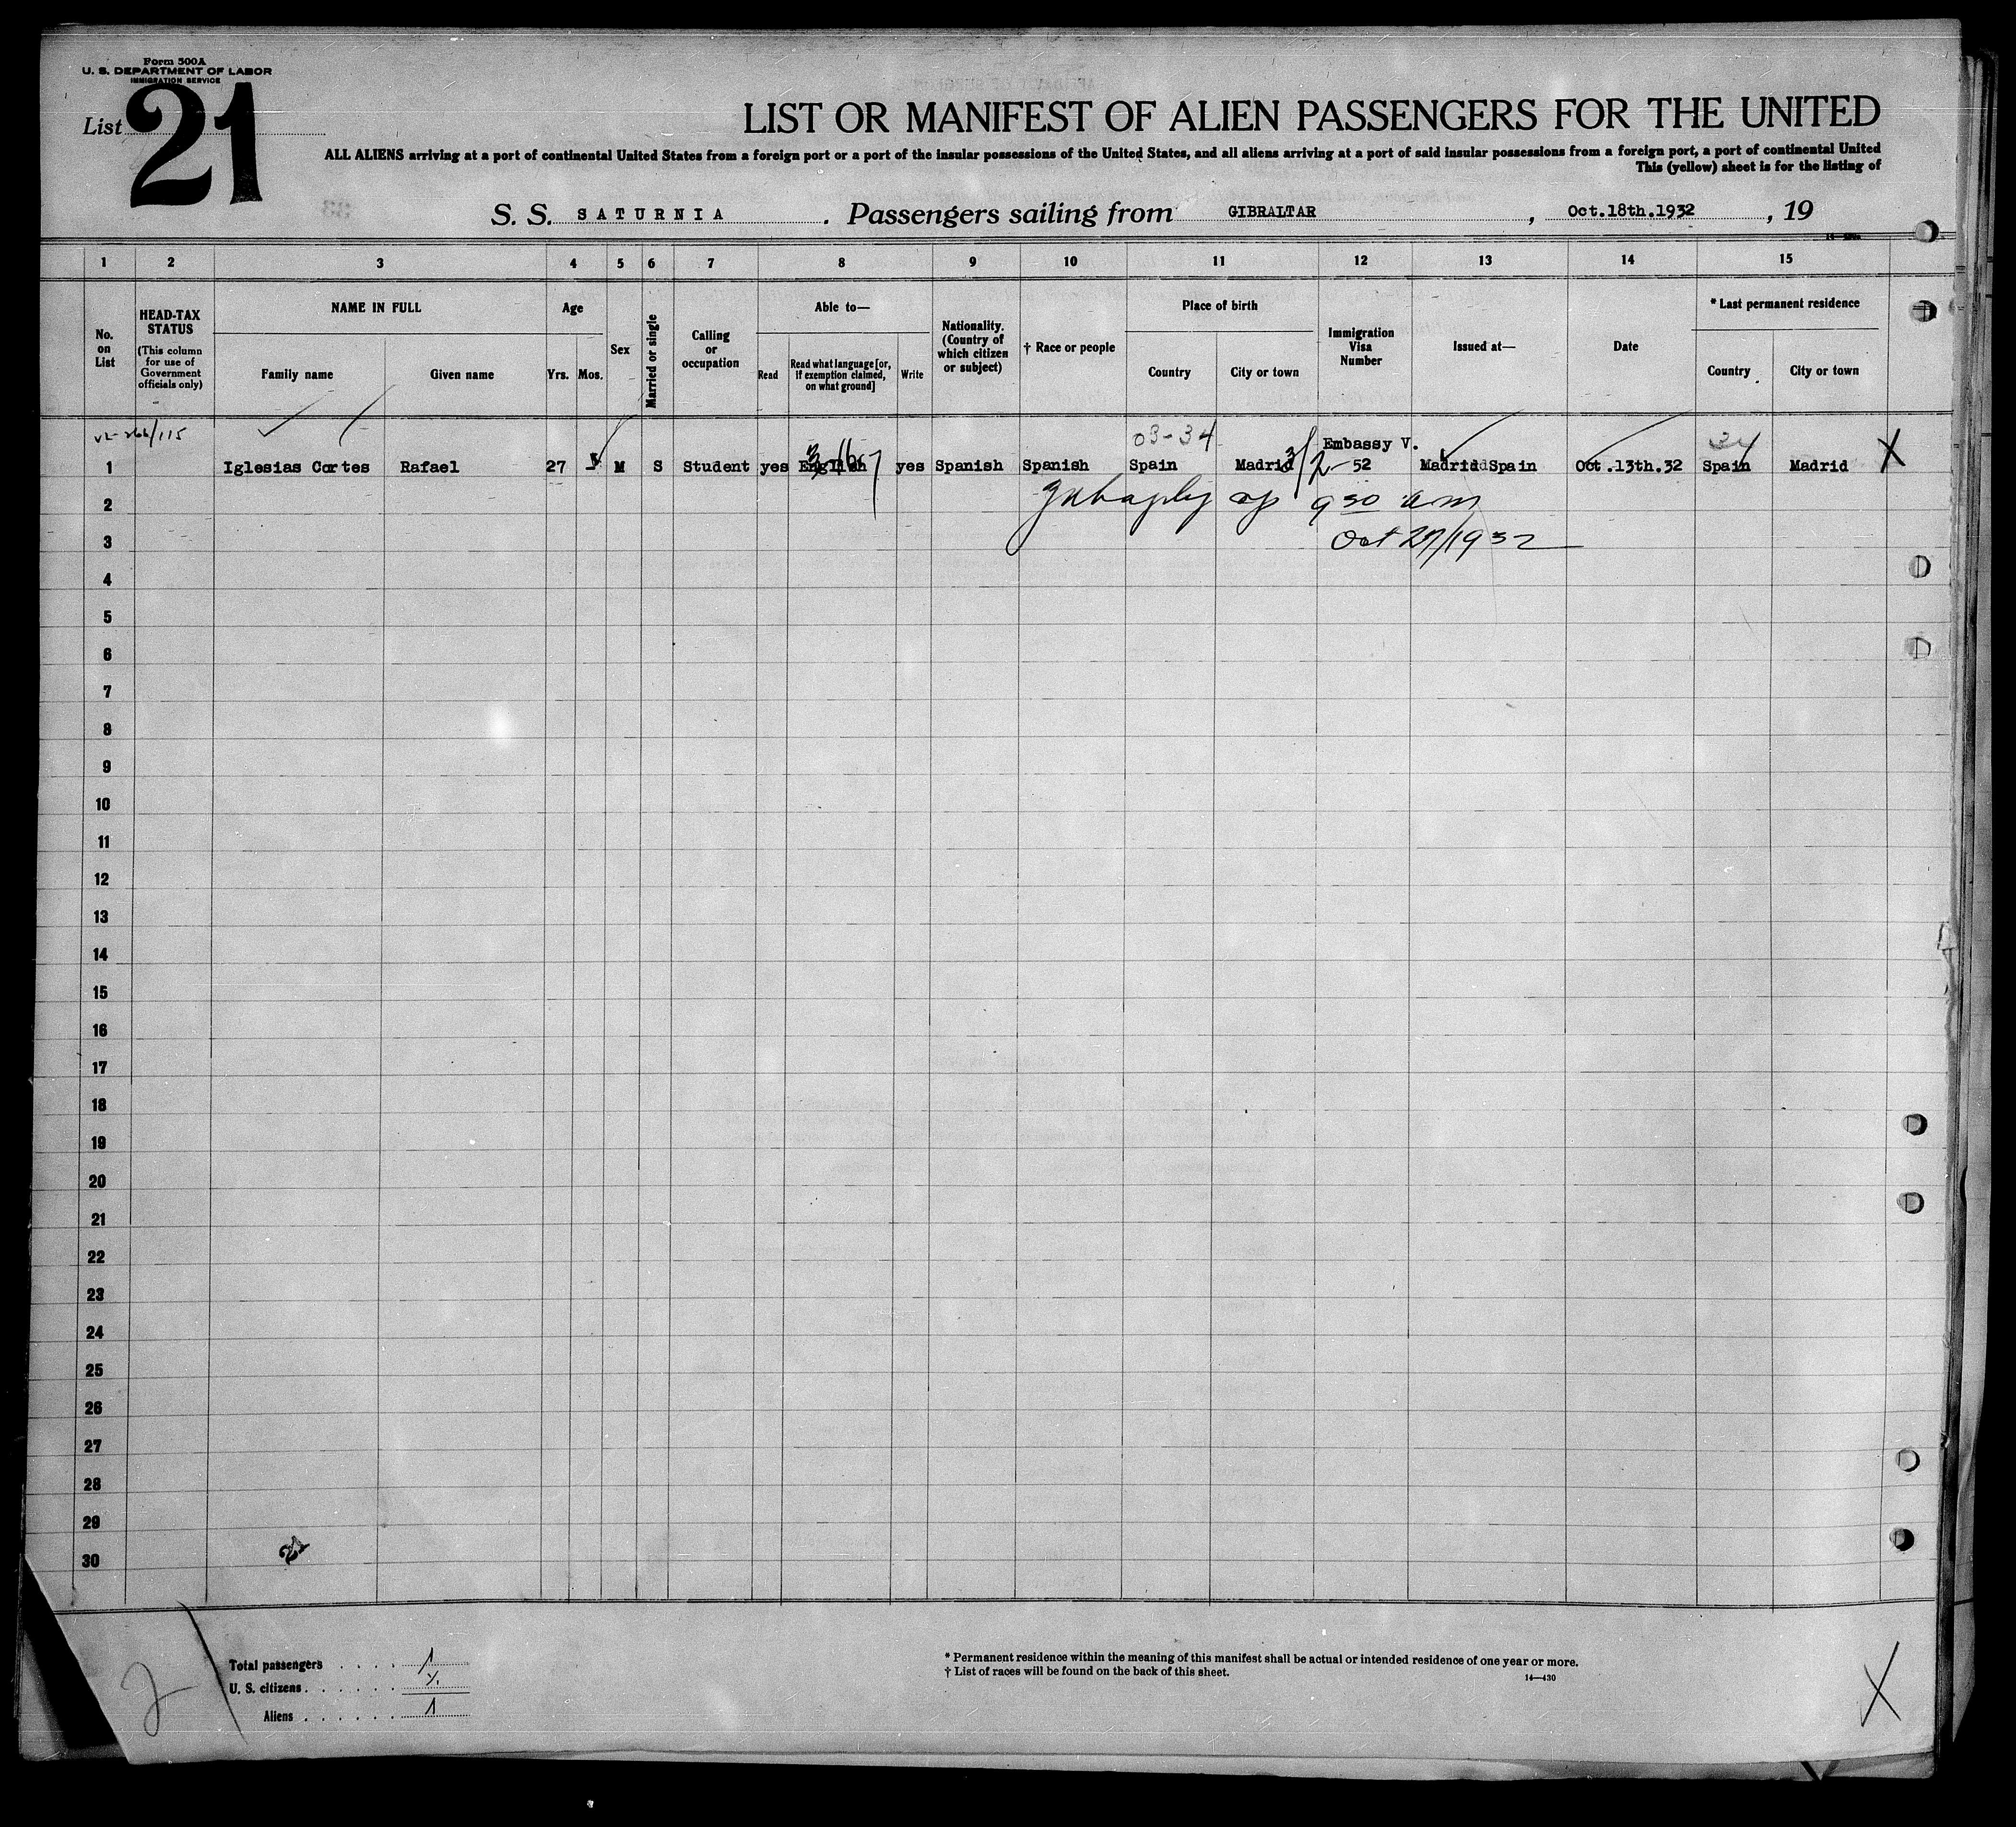 Form 500A
U. S. DEPARTMENT OF LABOR
IMMIGRATION SERVICE
List 21
LIST OR MANIFEST OF ALIEN PASSENGERS FOR THE UNITED
ALL ALIENS arriving at a port of continental United States from a foreign port or a port of the insular possessions of the United States, and all aliens arriving at a port of said insular possessions from a foreign port, a port of continental United
This (yellow) sheet is for the listing of
S. S. SATURNIA. Passengers sailing from GIBRALTAR, Oct.18th.1932, 19
1 2 3 4 5 6 7 8 9 10 11 12 13 14 15
No. on List
HEAD-TAX STATUS
(This column for use of Government officials only)
NAME IN FULL
Family name
Given name
Age
Yrs. Mos.
Sex
Married or single
Calling or occupation
Able to—
Read
Read what language [or, if exemption claimed, on what ground]
Write
Nationality. (Country of which citizen or subject)
† Race or people
Place of birth
Country
City or town
Immigration Visa Number
Issued at—
Date
* Last permanent residence
Country
City or town
03-34
Embassy V.
1 Iglesias Cortes Rafael 27 M S Student yes English yes Spanish Spanish Spain Madrid 52 Madrid Spain Oct.13th.32 Spain Madrid X
2 9 30 am
3 Oct 27/1932
4
5
6
7
8
9
10
11
12
13
14
15
16
17
18
19
20
21
22
23
24
25
26
27
28
29
30
Total passengers . . . . 1
U. S. citizens . . . . . .
Aliens . . . . . . 1
* Permanent residence within the meaning of this manifest shall be actual or intended residence of one year or more.
† List of races will be found on the back of this sheet.
14—430
2
X